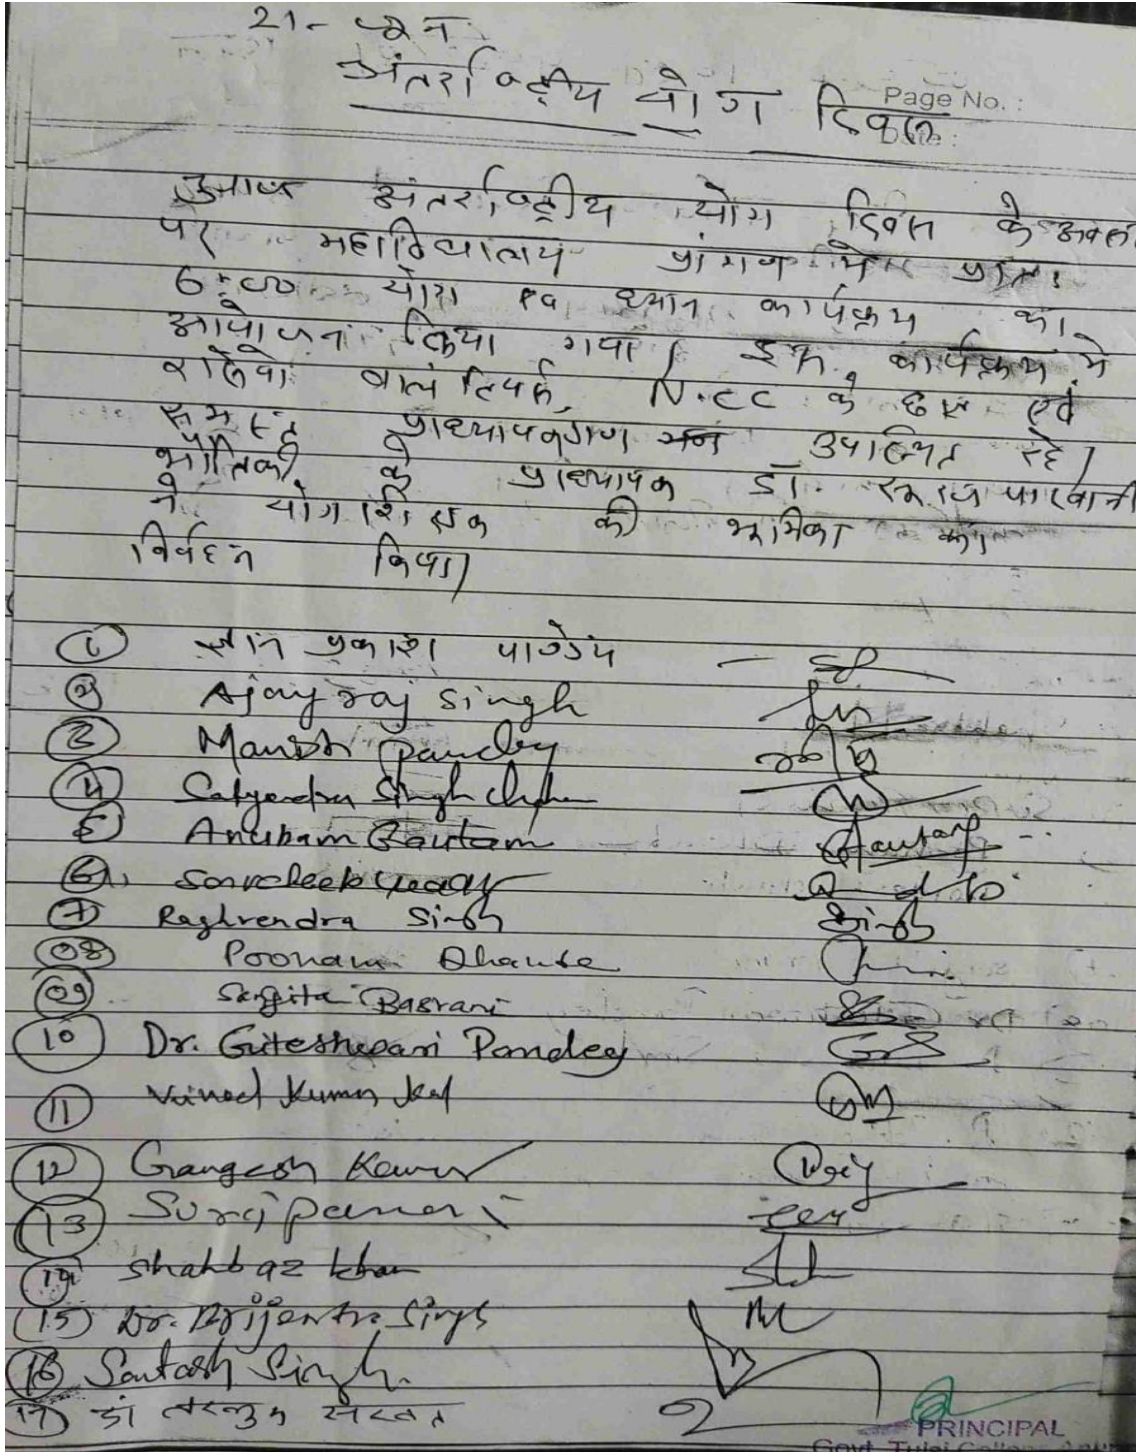 21- जून
अंतर्राष्ट्रीय योग दिवस
Page No. :
आज अंतर्राष्ट्रीय योग दिवस के अवसर
पर महाविद्यालय प्रांगण में प्रातः
6:00 योग एवं ध्यान कार्यक्रम का
आयोजन किया गया। इस कार्यक्रम में
रासेयो N.CC के छात्र एवं
समस्त प्राध्यापकगण उपस्थित रहे।
भौतिकी के प्राध्यापक डॉ.
ने योग शिक्षक की भूमिका का
निर्वहन किया।
1 ज्ञान प्रकाश पाण्डेय
2 Ajay raj singh
3 Manish pandey
4 Satyendra Singh
5 Anupam Gautam Gautam
6
7 Raghvendra Singh Singh
08 Poonam
09 Sangita Basrani
10 Dr. Giteshwari Pandey
11 Vinod Kumar
12 Gangesh Kumar
13 Suraj
14 Shahbaz khan
(15) Dr. Brijendra Singh
16 Santosh Singh.
17 डॉ
PRINCIPAL
Govt. Tulsi College